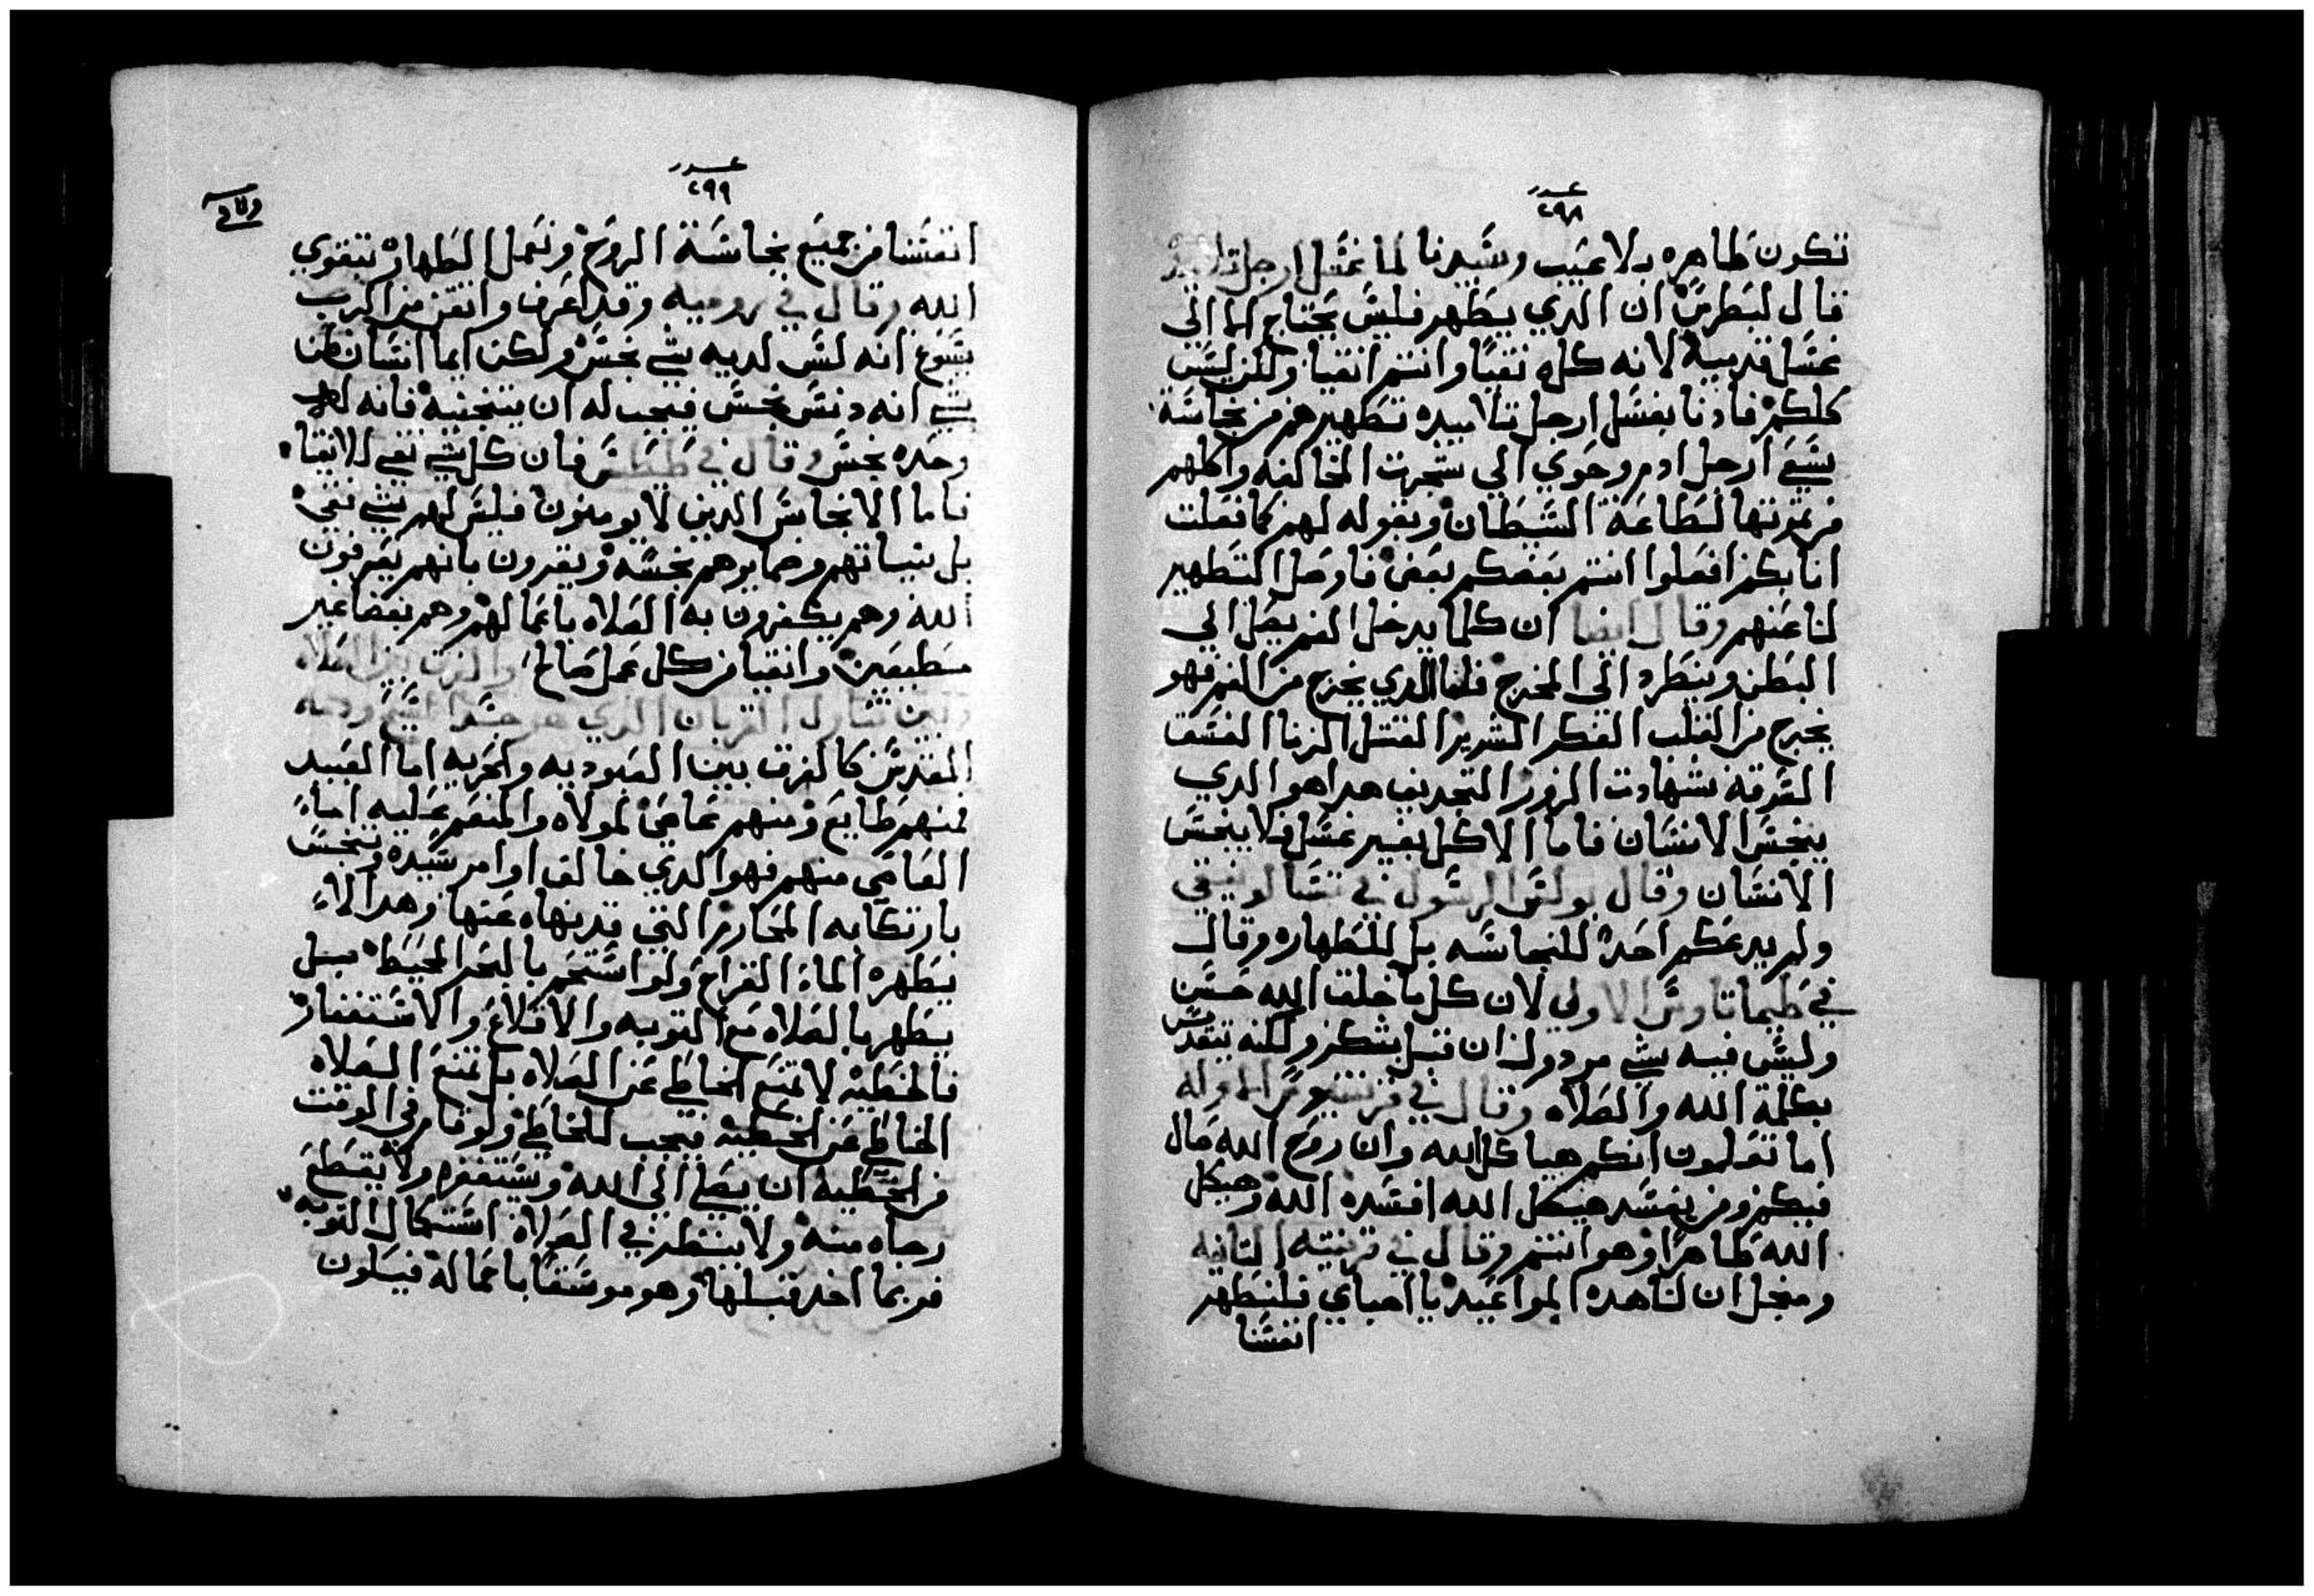 عدد
٢٩٨
تكون طاهره بلا عيب وسيدنا لما غسل ارجل تلاميده
قال لبطرس ان الدي يطهر فليس يحتاج الا الي
غسل قدميه لانه كله نقيا وانتم انقيا ولكن ليس
كلكم فادنا بغسل ارجل تلاميده تطهيرهم من نجاسة
سعي ارجل ادم وحوي الي شجرت المخالفه واكلهم
من تمرتها لطاعة الشيطان وبقوله لهم كما فعلت
انا بكم افعلوا انتم بعضكم بعض فاوصل التطهير
لنا عنهم وقال ايضا ان كلما يدخل الفم يصل الي
البطن وينطرد الي المخرج فاما الدي يخرج من الفم فهو
يخرج من القلب الفكر الشرير القتل الزنا الفسق
السرقه شهادت الزور التجديف هدا هو الدي
ينجس الانسان فاما الاكل بغير غسل فلا ينجس
الانسان وقال بولس الرسول في تسالونيقي
ولم يدعكم احد للنجاسه بل للطهاره وقال
في طيماتاوس الاولي لان كل ما خلق الله حسن
وليس فيه شي مردول ان قبل بشكر ولكنه يتقدس
بكلمة الله والصلاه وقال في قرنتيوس الاوله
اما تعلمون انكم هياكل الله وان روح الله حال
فيكم ومن يفسد هيكل الله افسده الله وهيكل
الله طاهرا وهو انتم وقال في قرنتيه التانيه
ومنجل ان لنا هده المواعيد يا احباي فلنطهر
انفسنا
عدد
٢٩٩
انفسنا من جميع نجاسة الروح ونعمل الطهاره بتقوي
الله وقال في روميه وقد اعرف واتقن من الرب
يسوع انه ليس لديه شي نجس ولكن ايما انسان ظن
بشي انه دنس نجس فيجب له ان يتجنبه فانه له
وحده نجس وقال في طيطس فان كل شي نقي للانقياء
فاما الانجاس الدين لا يومنون فليس لهم شي نقي
بل نياتهم وضمايرهم نجسه ويقرون بانهم يعرفون
الله وهم يكفرون به الصلاه باعمالهم وهم بغضا غير
مطيعين وانقيا من كل عمل صالح والفرق بين الصلاه
وبين تناول القربان الدي هو جسد المسيح ودمه
المقدس كالفرق بين العبوديه والحريه اما العبيد
فمنهم طايع ومنهم عاصي لمولاه والمنعم عليه اما
العاصي منهم فهو الدي خالف اوامر سيده وتنجس
بارتكابه المحارم التي قد نهاه عنها وهدا لا
يطهره الماء القراح ولو استحم بالبحر المحيط بل
يطهر بالصلاه مع التوبه والاقلاع والاستغفار
فالخطيه لا تمنع الخاطي عن الصلاه بل تمنع الصلاه
الخاطي عن الخطيه فيجب للخاطي ولو قام في الوقت
من الخطيه ان يصلي الي الله ويستغفره ولا يقطع
رجاه منه ولا ينتظر في الصلاه استكمال التوبه
فربما اخد قبلها وهو موسقا باعماله فيكون